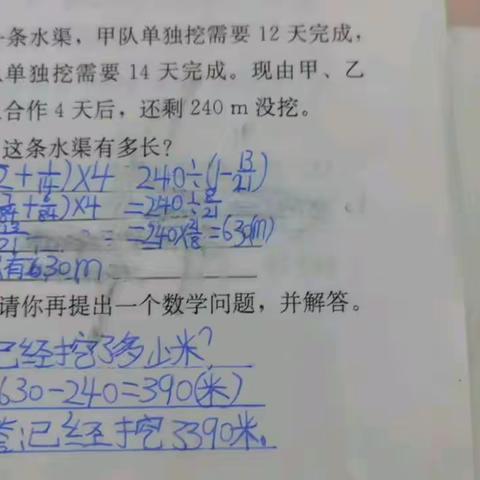 一条水渠，甲队单独挖需要 12 天完成，
单独挖需要 14 天完成。现由甲、乙
合作 4 天后，还剩 240 m 没挖。
这条水渠有多长？
2 + 1/14) × 4 240÷(1-13/21)
7/84 + 6/84) × 4 =240÷8/21
13/21 =240×21/8=630(m)
有630m
请你再提出一个数学问题，并解答。
已经挖了多少米？
630-240=390(米)
答：已经挖了390米。